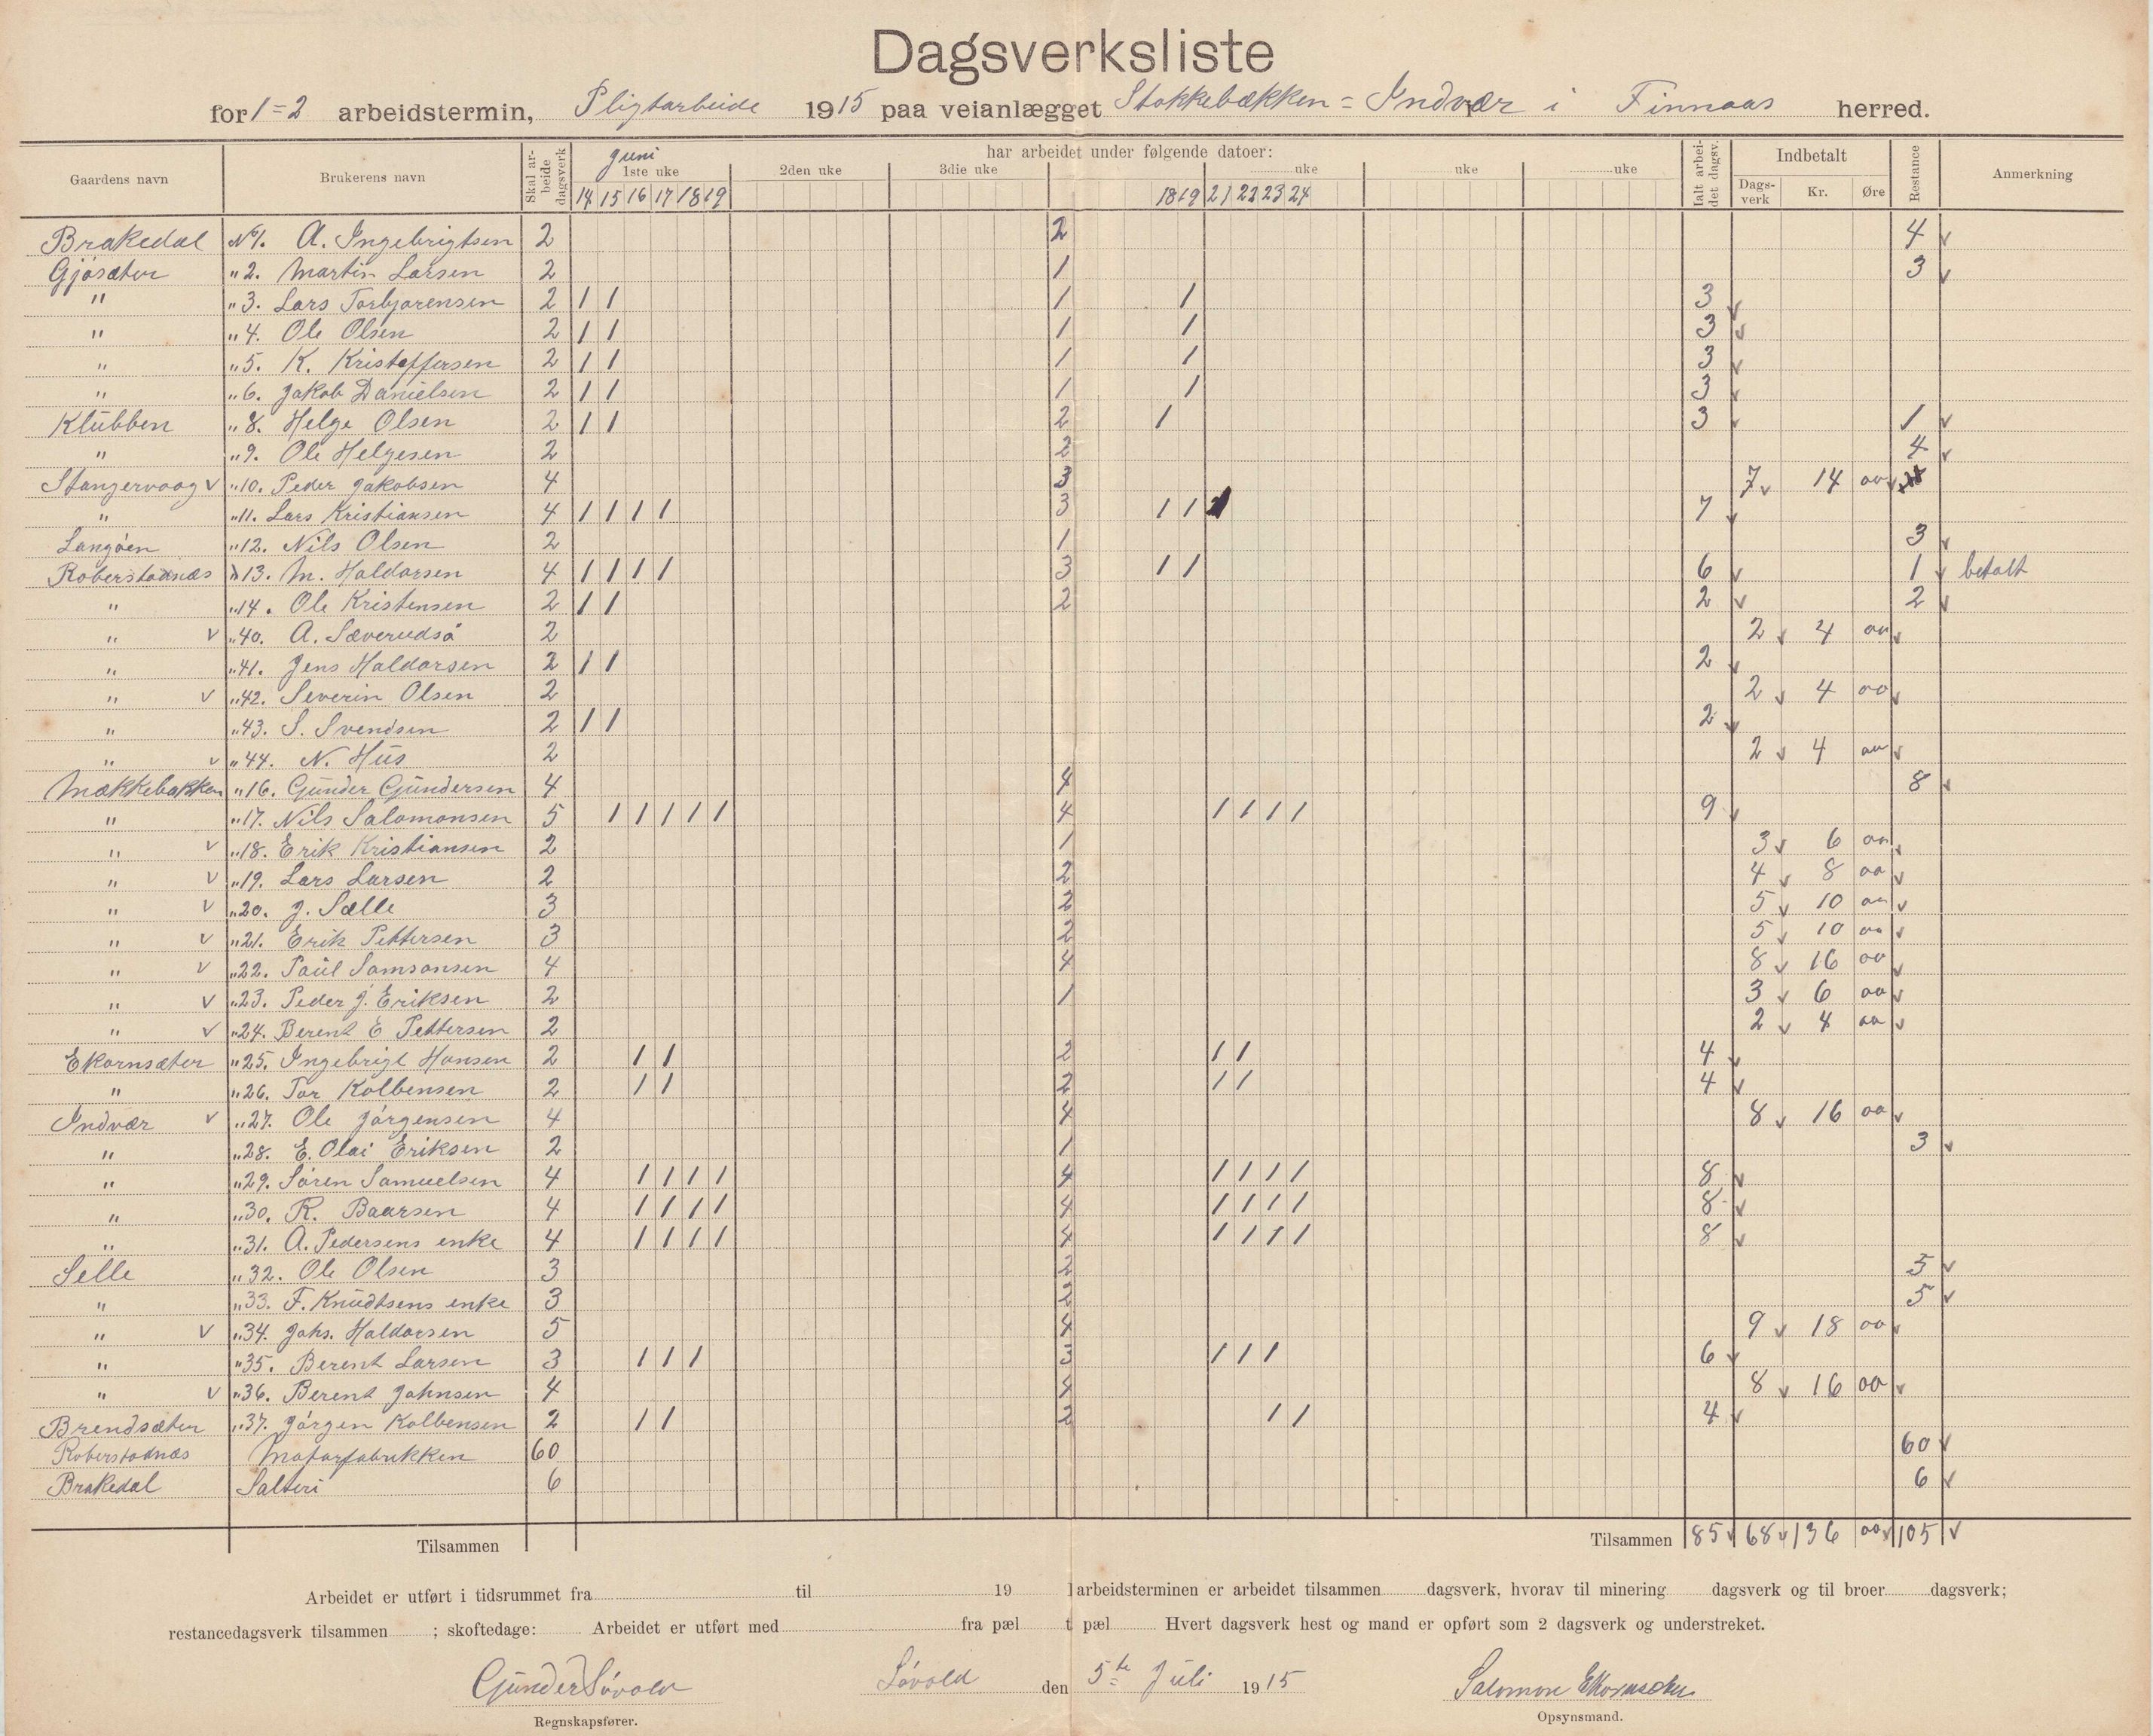 Dagsverksliste
for 1=2 arbeidstermin, Pligtarbeide 1915 paa veianlægget Stokkebækken = Indvær i Finnaas herred.
Gaardens navn Brukerens navn Skal arbeide dagsverk har arbeidet under følgende datoer: Ialt arbeidet dagsv. Indbetalt Restance Anmerkning
Juni
1ste uke 2den uke 3die uke uke uke uke Dagsverk Kr. Øre
14 15 16 17 18 19 18 19 21 22 23 24
Brakedal No 1. A. Ingebrigtsen 2 2 4 v
Gjøsæter " 2. Martin Larsen 2 1 3 v
" " 3. Lars Torbjørensen 2 1 1 1 1 3 v
" " 4. Ole Olsen 2 1 1 1 1 3 v
" " 5. K. Kristoffersen 2 1 1 1 1 3 v
" " 6. Jakob Danielsen 2 1 1 1 1 3 v
Klubben " 8. Helge Olsen 2 1 1 2 1 3 v 1 v
" " 9. Ole Helgesen 2 2 4 v
Stangervaag v " 10. Peder Jakobsen 4 3 7 v 14 00 v
" " 11. Lars Kristiansen 4 1 1 1 1 3 1 1 7 v
Langøen " 12. Nils Olsen 2 1 3 v
Roberstadnæs " 13. M. Haldorsen 4 1 1 1 1 3 1 1 6 v 1 v betalt
" " 14. Ole Kristensen 2 1 1 2 2 v 2 v
" v " 40. A. Sæverudsø 2 2 v 4 00 v
" " 41. Jens Haldorsen 2 1 1 2 v
" v " 42. Severin Olsen 2 2 v 4 00 v
" " 43. S. Svendsen 2 1 1 2 v
" v " 44. N. Hus 2 2 v 4 00 v
Mækkebakken " 16. Gunder Gundersen 4 4 8 v
" " 17. Nils Salomonsen 5 1 1 1 1 1 4 1 1 1 1 9 v
" v " 18. Erik Kristiansen 2 1 3 v 6 00 v
" v " 19. Lars Larsen 2 2 4 v 8 00 v
" v " 20. J. Sælle 3 2 5 v 10 00 v
" v " 21. Erik Pettersen 3 2 5 v 10 00 v
" v " 22. Paul Samsonsen 4 4 8 v 16 00 v
" v " 23. Peder J. Eriksen 2 1 3 v 6 00 v
" v " 24. Berent E Pettersen 2 2 v 4 00 v
Ekornsæter " 25. Ingebrigt Hansen 2 1 1 2 1 1 4 v
" " 26. Tor Kolbensen 2 1 1 2 1 1 4 v
Indvær v " 27. Ole Jørgensen 4 4 8 v 16 00 v
" " 28. E. Olai Eriksen 2 1 3 v
" " 29. Søren Samuelsen 4 1 1 1 1 4 1 1 1 1 8 v
" " 30. R. Baarsen 4 1 1 1 1 4 1 1 1 1 8 v
" " 31. A. Pedersens enke 4 1 1 1 1 4 1 1 1 1 8 v
Selle " 32. Ole Olsen 3 2 5 v
" " 33. F. Knudtsens enke 3 2 5 v
" v " 34. Johs. Haldorsen 5 4 9 v 18 00 v
" " 35. Berent Larsen 3 1 1 1 3 1 1 1 6 v
" v " 36. Berent Johnsen 4 4 8 v 16 00 v
Brendsæter " 37. Jørgen Kolbensen 2 1 1 2 1 1 4 v
Roberstadnæs Motorfabrikken 60 60 v
Brakedal Salteri 6 6 v
Tilsammen Tilsammen 85 v 68 v 136 00 v 105 v
Arbeidet er utført i tidsrummet fra til 19 I arbeidsterminen er arbeidet tilsammen dagsverk, hvorav til minering dagsverk og til broer dagsverk;
restancedagsverk tilsammen ; skoftedage: Arbeidet er utført med fra pæl t pæl Hvert dagsverk hest og mand er opført som 2 dagsverk og understreket.
Gunder Søvold Søvold den 5te Juli 1915 Salomon Ekornsæter
Regnskapsfører. Opsynsmand.